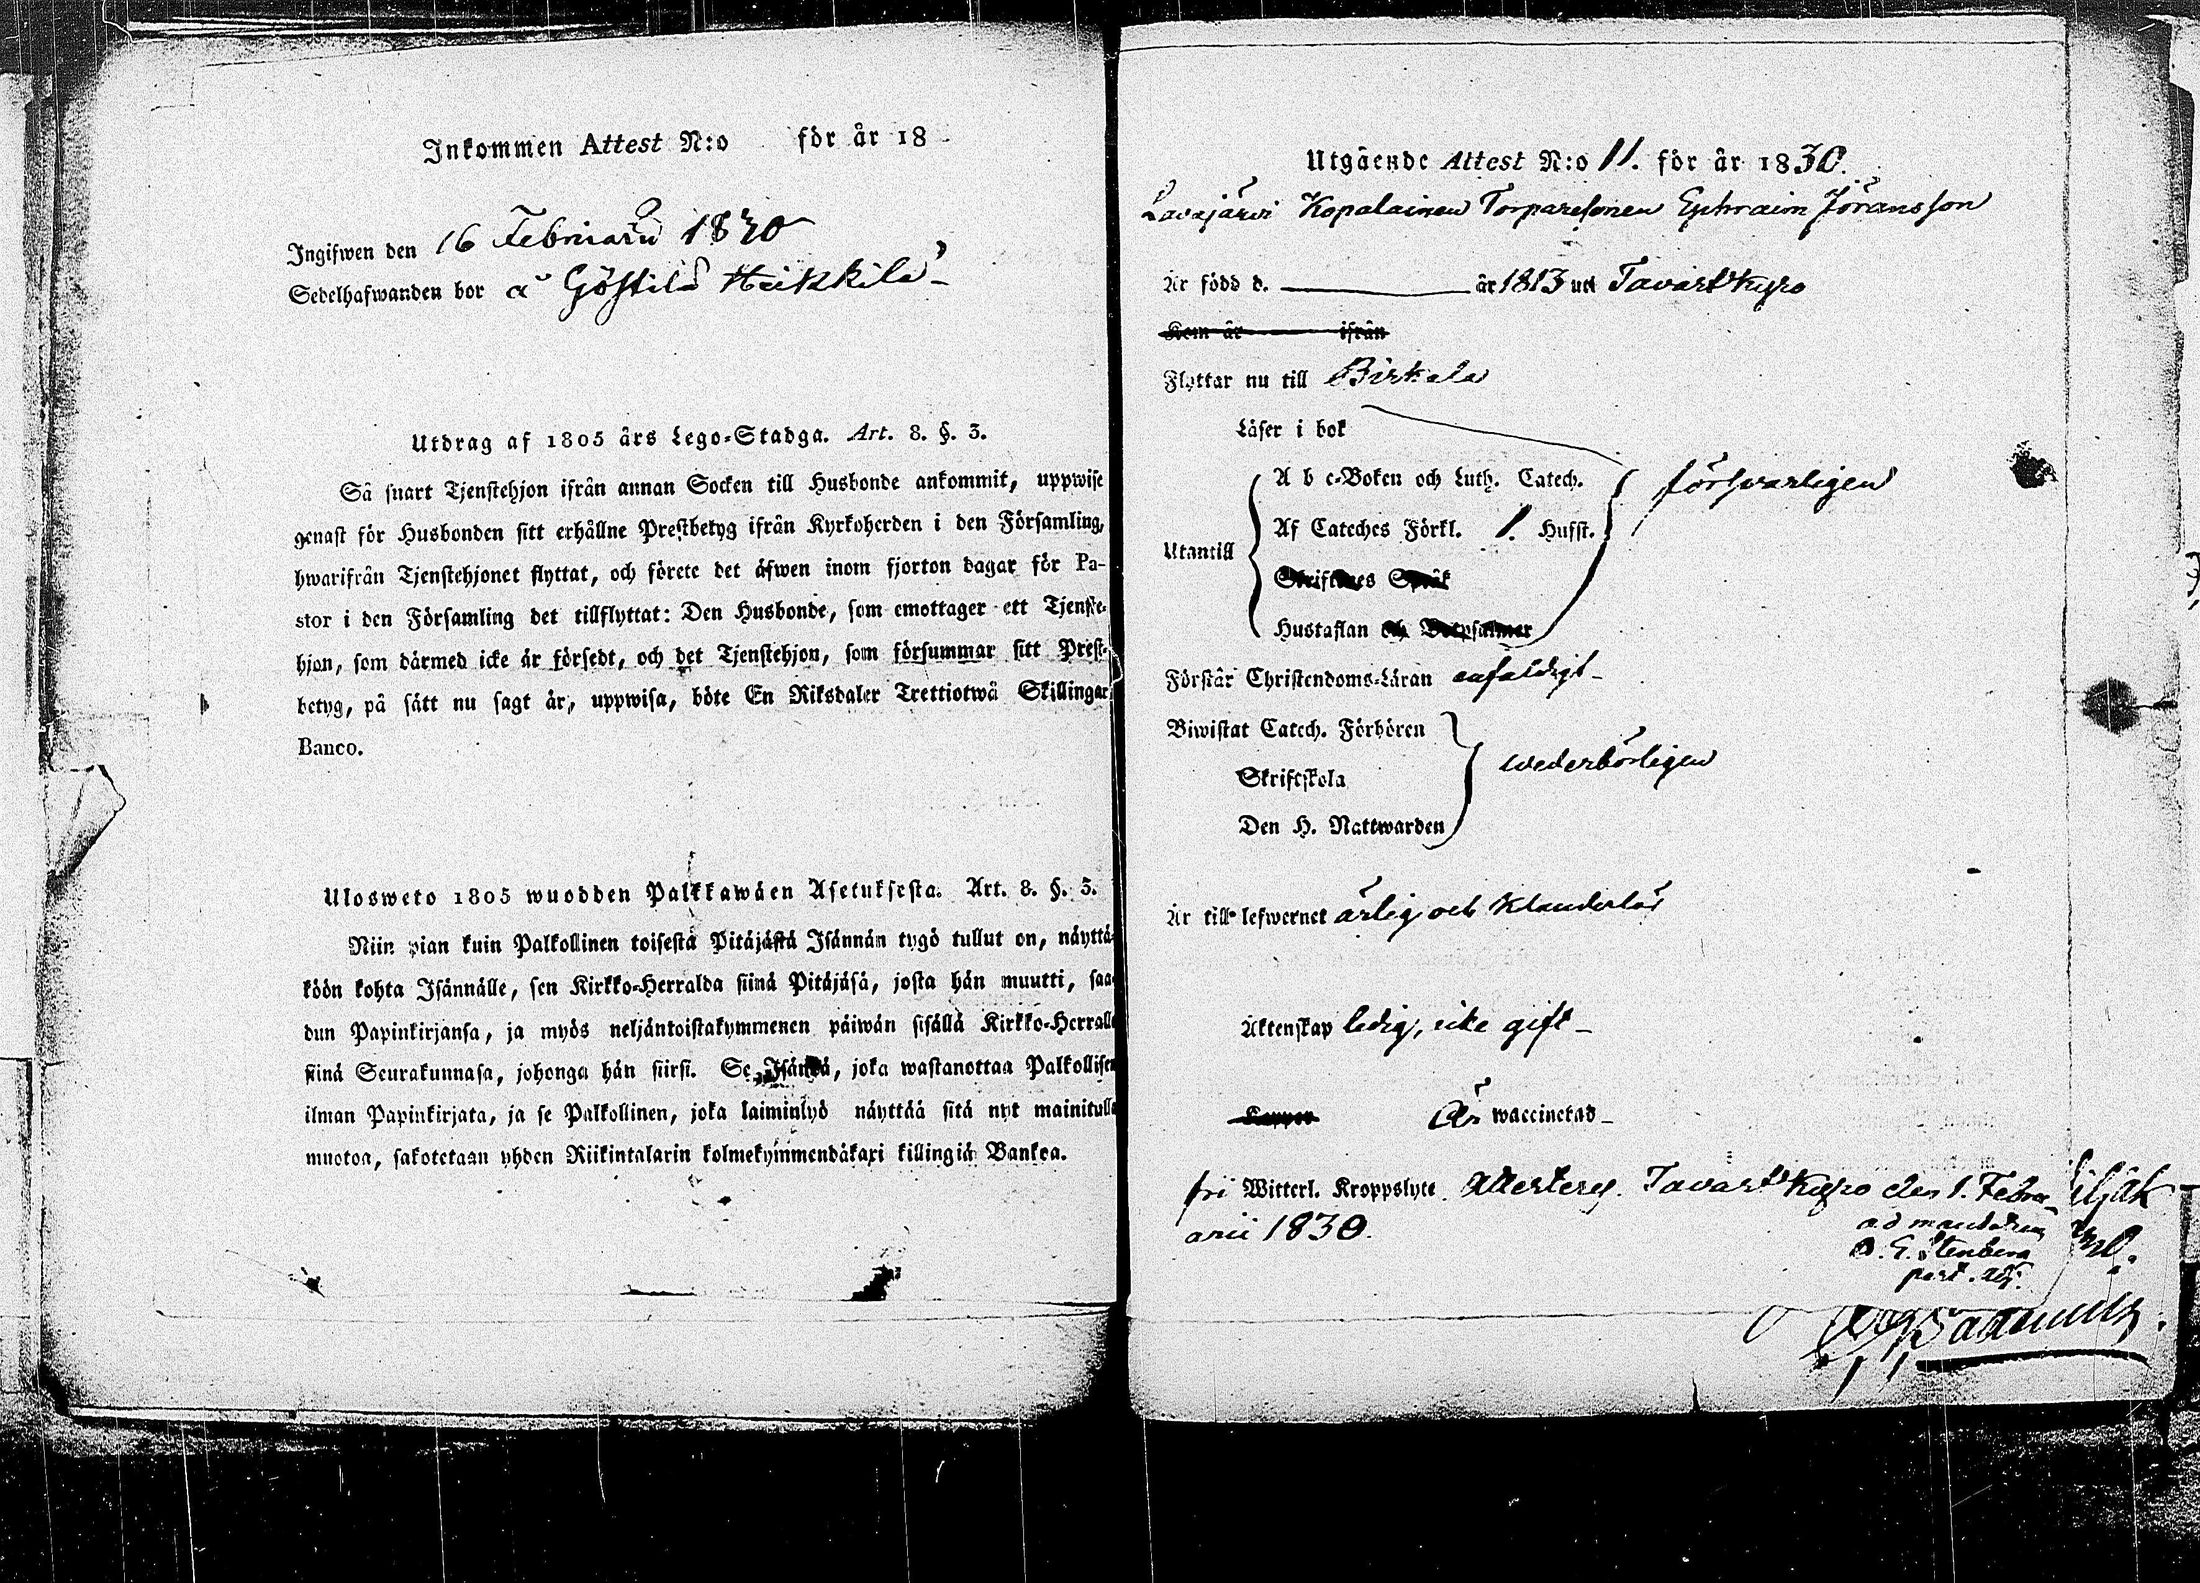 Inkommen Attest N:o för år 18
Ingifwen den 16 Februarii 1830
Sedelhafwanden bor å Göstilä Heikkilä
Utdrag af 1805 års Lego-Stadga. Art. 8. §. 3.
Så snart Tjenstehjon ifrån annan Socken till Husbonde ankommit, uppwise
genast för Husbonden sitt erhållne Prestbetyg ifrån Kyrkoherden i den Församling,
hwarifrån Tjenstehjonet flyttat, och förete det äfwen inom fjorton dagar för Pa-
stor i den Församling det tillflyttat: Den Husbonde, som emottager ett Tjenste-
hjon, som därmed icke är försedt, och det Tjenstehjon, som försummar sitt Prest-
betyg, på sätt nu sagt är, uppwisa, böte En Riksdaler Trettiotwå Skillingar
Banco.
Ulosweto 1805 wuodden Palkkawäen Asetuksesta. Art. 8. §. 3.
Niin pian kuin Palkollinen toisesta Pitäjästä Isännän tygö tullut on, näyttä-
köön kohta Isännälle, sen Kirkko-Herralda siinä Pitäjäsä, josta hän muutti, saa-
dun Papinkirjansa, ja myös neljäntoistakymmenen päiwän sisällä Kirkko-Herralle
siinä Seurakunnasa, johonga hän siirsi. Se Isändä, joka wastanottaa Palkollisen
ilman Papinkirjata, ja se Palkollinen, joka laiminlyö näyttää sitä nyt mainitulla
muotoa, sakotetaan yhden Riikintalarin kolmekymmendäkaxi killingiä Bankoa.
Utgående Attest N:o 11. för år 1830.
Lavajärvi Kopalainen Torparesonen Ephraim Jöransson
Är född d. år 1813 uti Tavastkyro
Kom år ifrån
Flyttar nu till Birkala
Läser i bok
A b c-Boken och Luth. Catech.
försvarligen
Af Cateches Förkl. 1. Husst.
Utantill
Skriftenes Språk
Hustaflan och Botpsalmer
Förstår Christendoms-Läran enfaldigt
Biwistat Catech. Förhören
Skriftskola
wederbörligen
Den H. Nattwarden
Är till lefwernet ärlig och klanderlös
Äktenskap ledig, icke gift
Koppor Är waccinerad
fri Witterl. Kroppslyte. Attesterar. Tavastkyro den 1. Febru-
arii 1830.
ad mandatum
G. Stenberg
past. adj.